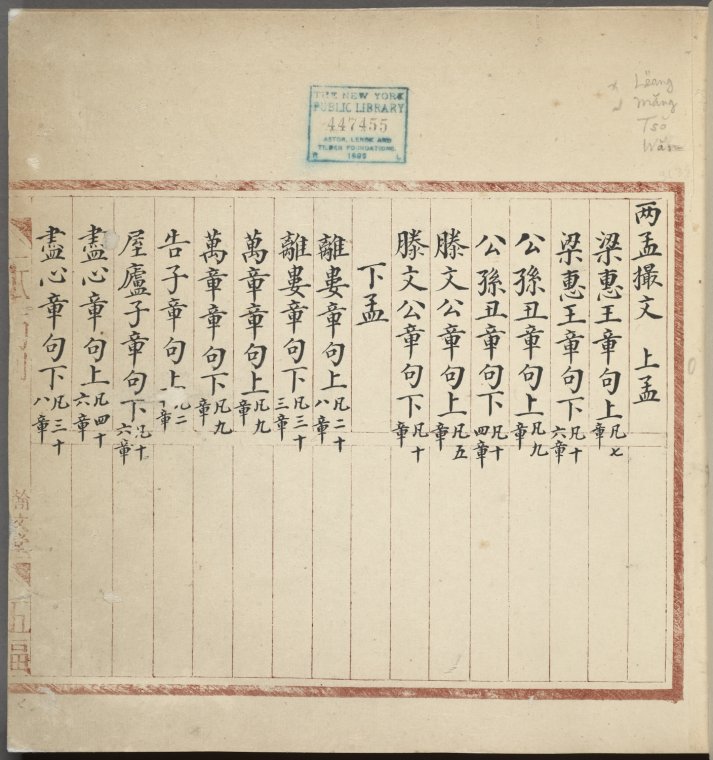 THE NEW YORK
PUBLIC LIBRARY
447455
ASTOR, LENOX AND
TILDEN FOUNDATIONS.
R 1899 L
Lëang
Măng
Tsŏ
Wăn
两孟撮文 上孟
梁惠王章句上凡七章
梁惠王章句下凡十六章
公孫丑章句上凡九章
公孫丑章句下凡十四章
滕文公章句上凡五章
滕文公章句下凡十章
下孟
離婁章句上凡二十八章
離婁章句下凡三十三章
萬章章句上凡九章
萬章章句下凡九章
告子章句上凡二章
屋廬子章句下凡十六章
盡心章句上凡四十六章
盡心章句下凡三十八章